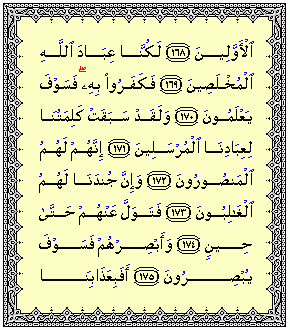 ٱلْأَوَّلِينَ ﴿١٦٨﴾ لَكُنَّا عِبَادَ ٱللَّهِ
ٱلْمُخْلَصِينَ ﴿١٦٩﴾ فَكَفَرُوا۟ بِهِۦ ۖ فَسَوْفَ
يَعْلَمُونَ ﴿١٧٠﴾ وَلَقَدْ سَبَقَتْ كَلِمَتُنَا
لِعِبَادِنَا ٱلْمُرْسَلِينَ ﴿١٧١﴾ إِنَّهُمْ لَهُمُ
ٱلْمَنصُورُونَ ﴿١٧٢﴾ وَإِنَّ جُندَنَا لَهُمُ
ٱلْغَـٰلِبُونَ ﴿١٧٣﴾ فَتَوَلَّ عَنْهُمْ حَتَّىٰ
حِينٍ ﴿١٧٤﴾ وَأَبْصِرْهُمْ فَسَوْفَ
يُبْصِرُونَ ﴿١٧٥﴾ أَفَبِعَذَابِنَا